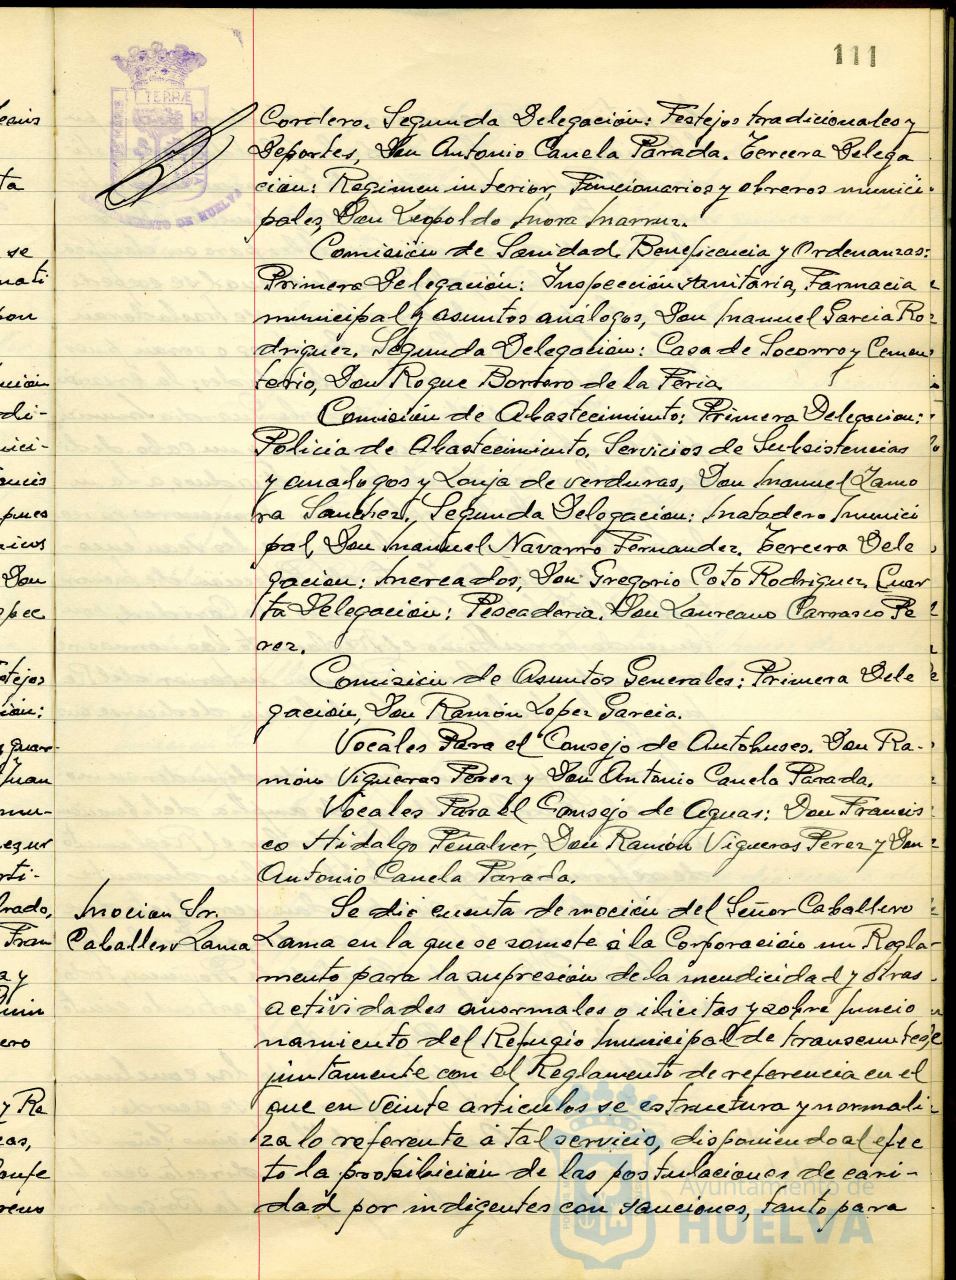 111
Cordero. Segunda Delegación: Festejos tradicionales y
Deportes, Don Antonio Canela Parada. Tercera Delega
ción: Regimen interior, Funcionarios y obreros munici-
pales, Don Leopoldo Mora Marruz.
Comisión de Sanidad, Beneficencia y Ordenanzas:
Primera Delegación: Inspección sanitaria, Farmacia
municipal y asuntos análogos, Don Manuel Garcia Ro-
driguez. Segunda Delegación: Casa de Socorro y Cemen-
terio, Don Roque Borrero de la Feria.
Comisión de Abastecimiento: Primera Delegacion:
Policia de Abastecimiento, Servicios de Subsistencias
y analogos y Lonja de verduras, Don Manuel Zamo
ra Sanchez, Segunda Delegacion: Matadero Munici
pal, Don Manuel Navarro Fernandez. Tercera Dele
gacion: Mercados, Don Gregorio Coto Rodriguez, Cuar
ta Delegación: Pescaderia, Don Laureano Carrasco Pe
rez.
Comisión de Asuntos Generales: Primera Dele
gación, Don Ramón Lopez Garcia.
Vocales Para el Consejo de Autobuses. Don Ra-
món Vigueras Perez y Don Antonio Canela Parada.
Vocales Para el Consejo de Aguas: Don Francis
co Hidalgo Peñalver, Don Ramón Vigueras Perez y Don
Antonio Canela Parada.
Mocion Sr.
Caballero Lama
Se dió cuenta de moción del Señor Caballero
Lama en la que se somete á la Corporación un Regla-
mento para la supresión de la mendicidad y otras
actividades anormales o ilicitas y sobre funcio
namiento del Refugio Municipal de transeuntes,
juntamente con el Reglamento de referencia en el
que en veinte articulos se estructura y normali
za lo referente á tal servicio, disponiendo al efec
to la prohibición de las postulaciones de cari-
dad por indigentes con sanciones, tanto para
Ayuntamiento de
HUELVA